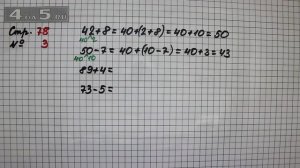 4 на 5.ru
Стр. 78
№ 3
42+8=40+(2+8)=40+10=50
40 2
50-7=40+(10-7)=40+3=43
40 10
89+4=
73-5=